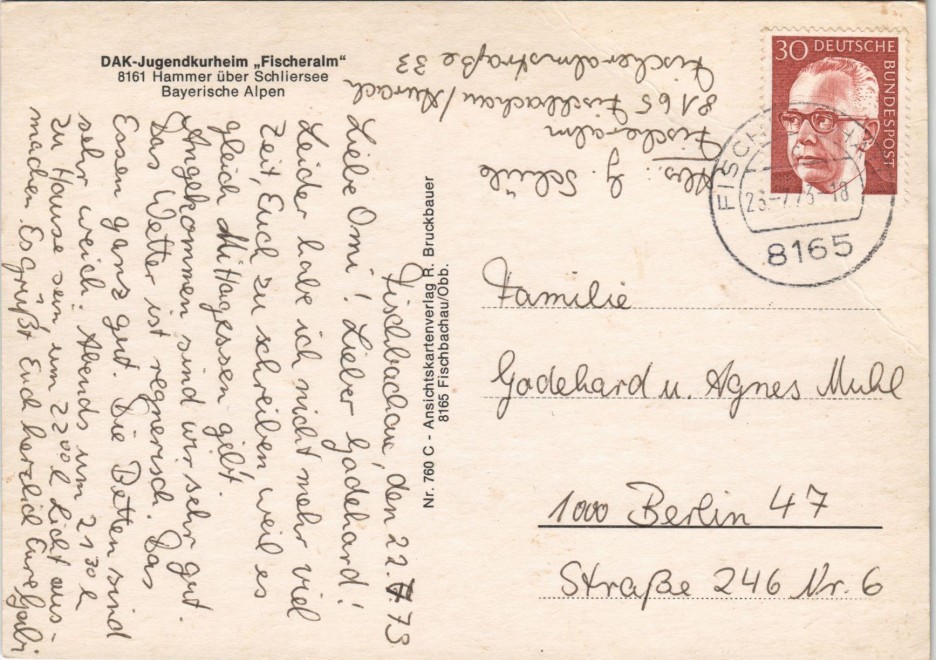 DAK-Jugendkurheim „Fischeralm“
8161 Hammer über Schliersee
Bayerische Alpen
Fischbachau, den 22.7.73
Liebe Omi! Lieber Godehard!
Leider habe ich nicht mehr viel
Zeit, Euch zu schreiben, weil es
gleich Mittagessen gibt.
Angekommen sind wir sehr gut.
Das Wetter ist regnerisch. Das
Essen ganz gut. Die Betten sind
sehr weich. Abends um 21 30 h
zu Hause sein um 22 00 h Licht aus-
machen. Es grüßt Euch herzlich Eure Gabi
Nr. 760 C - Ansichtskartenverlag R. Bruckbauer
8165 Fischbachau/Obb.
Abs.: G. Schüle
Fischeralm
8165 Fischbachau/Aurach
Fischeralmstraße 33
30 DEUTSCHE
BUNDESPOST
23.-7.73-18
8165
Familie
Godehard u. Agnes Muhl
1000 Berlin 47
Straße 246 Nr. 6